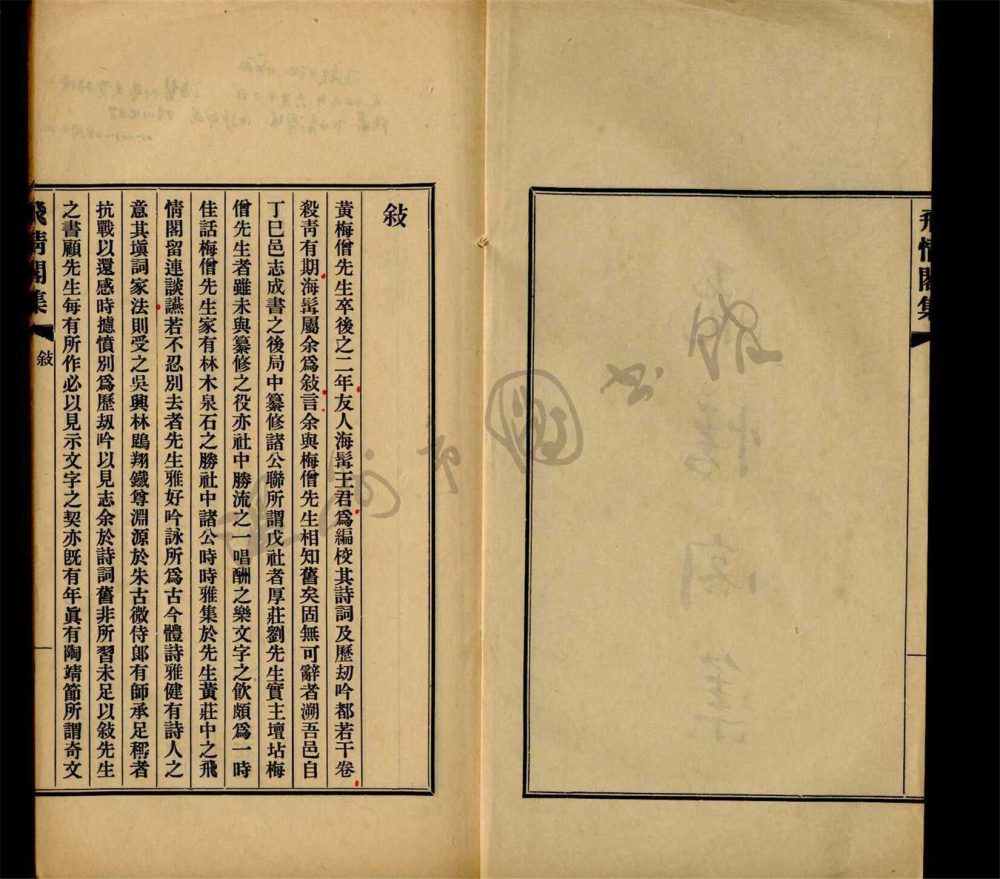 飛情閣集
敍
黃梅僧先生卒後之二年友人海髯王君爲編校其詩詞及歷刼吟都若干卷
殺靑有期海髯屬余爲敍言余與梅僧先生相知舊矣固無可辭者溯吾邑自
丁巳邑志成書之後局中纂修諸公聯所謂戊社者厚莊劉先生實主壇坫梅
僧先生者雖未與纂修之役亦社中勝流之一唱酬之樂文字之飮頗爲一時
佳話梅僧先生家有林木泉石之勝社中諸公時時雅集於先生黃莊中之飛
情閣留連談讌若不忍別去者先生雅好吟詠所爲古今體詩雅健有詩人之
意其塡詞家法則受之吳興林鵾翔鐵尊淵源於朱古微侍郞有師承足稱者
抗戰以還感時攄憤別爲歷刼吟以見志余於詩詞舊非所習未足以敍先生
之書顧先生每有所作必以見示文字之契亦旣有年眞有陶靖節所謂奇文
飛情閣集
敍
溫州市圖